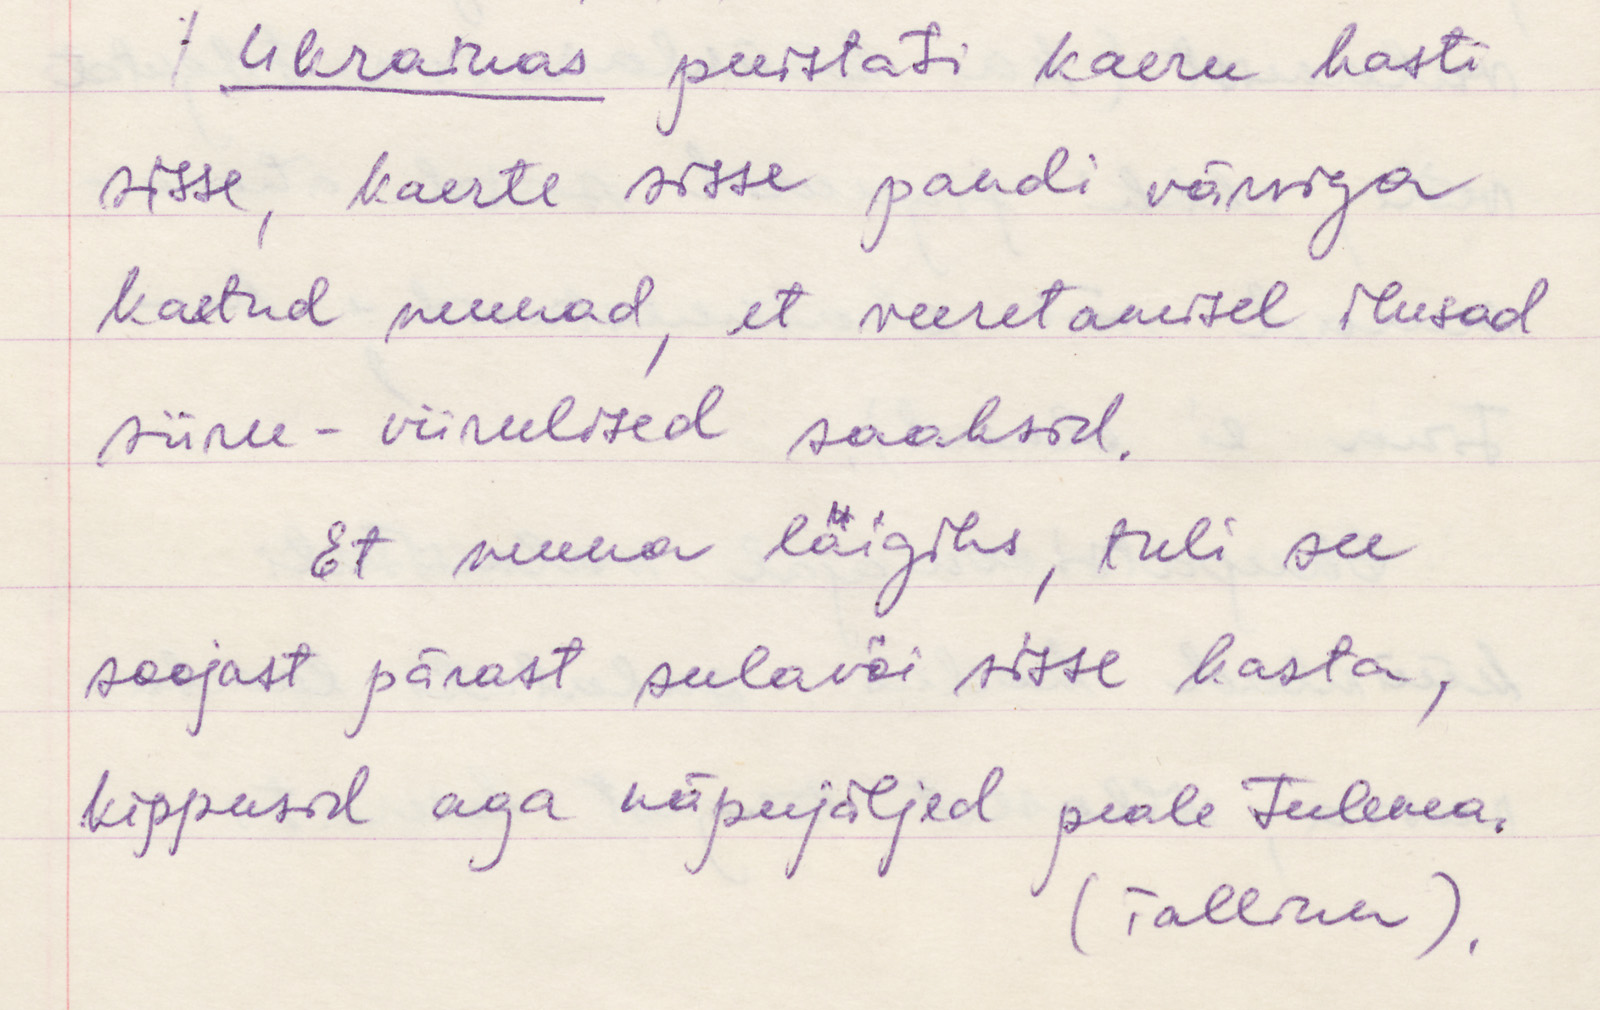 Ukrainas puistati kaeru kasti
sisse, kaerte sisse pandi värviga
kaetud munad, et veeretamisel ilusad
siiru-viirulised saaksid.
Et muna läigiks, tuli see
soojast pärast sulavõi sisse kasta,
kippusid aga näpujäljed peale tulema.
(Tallinn).